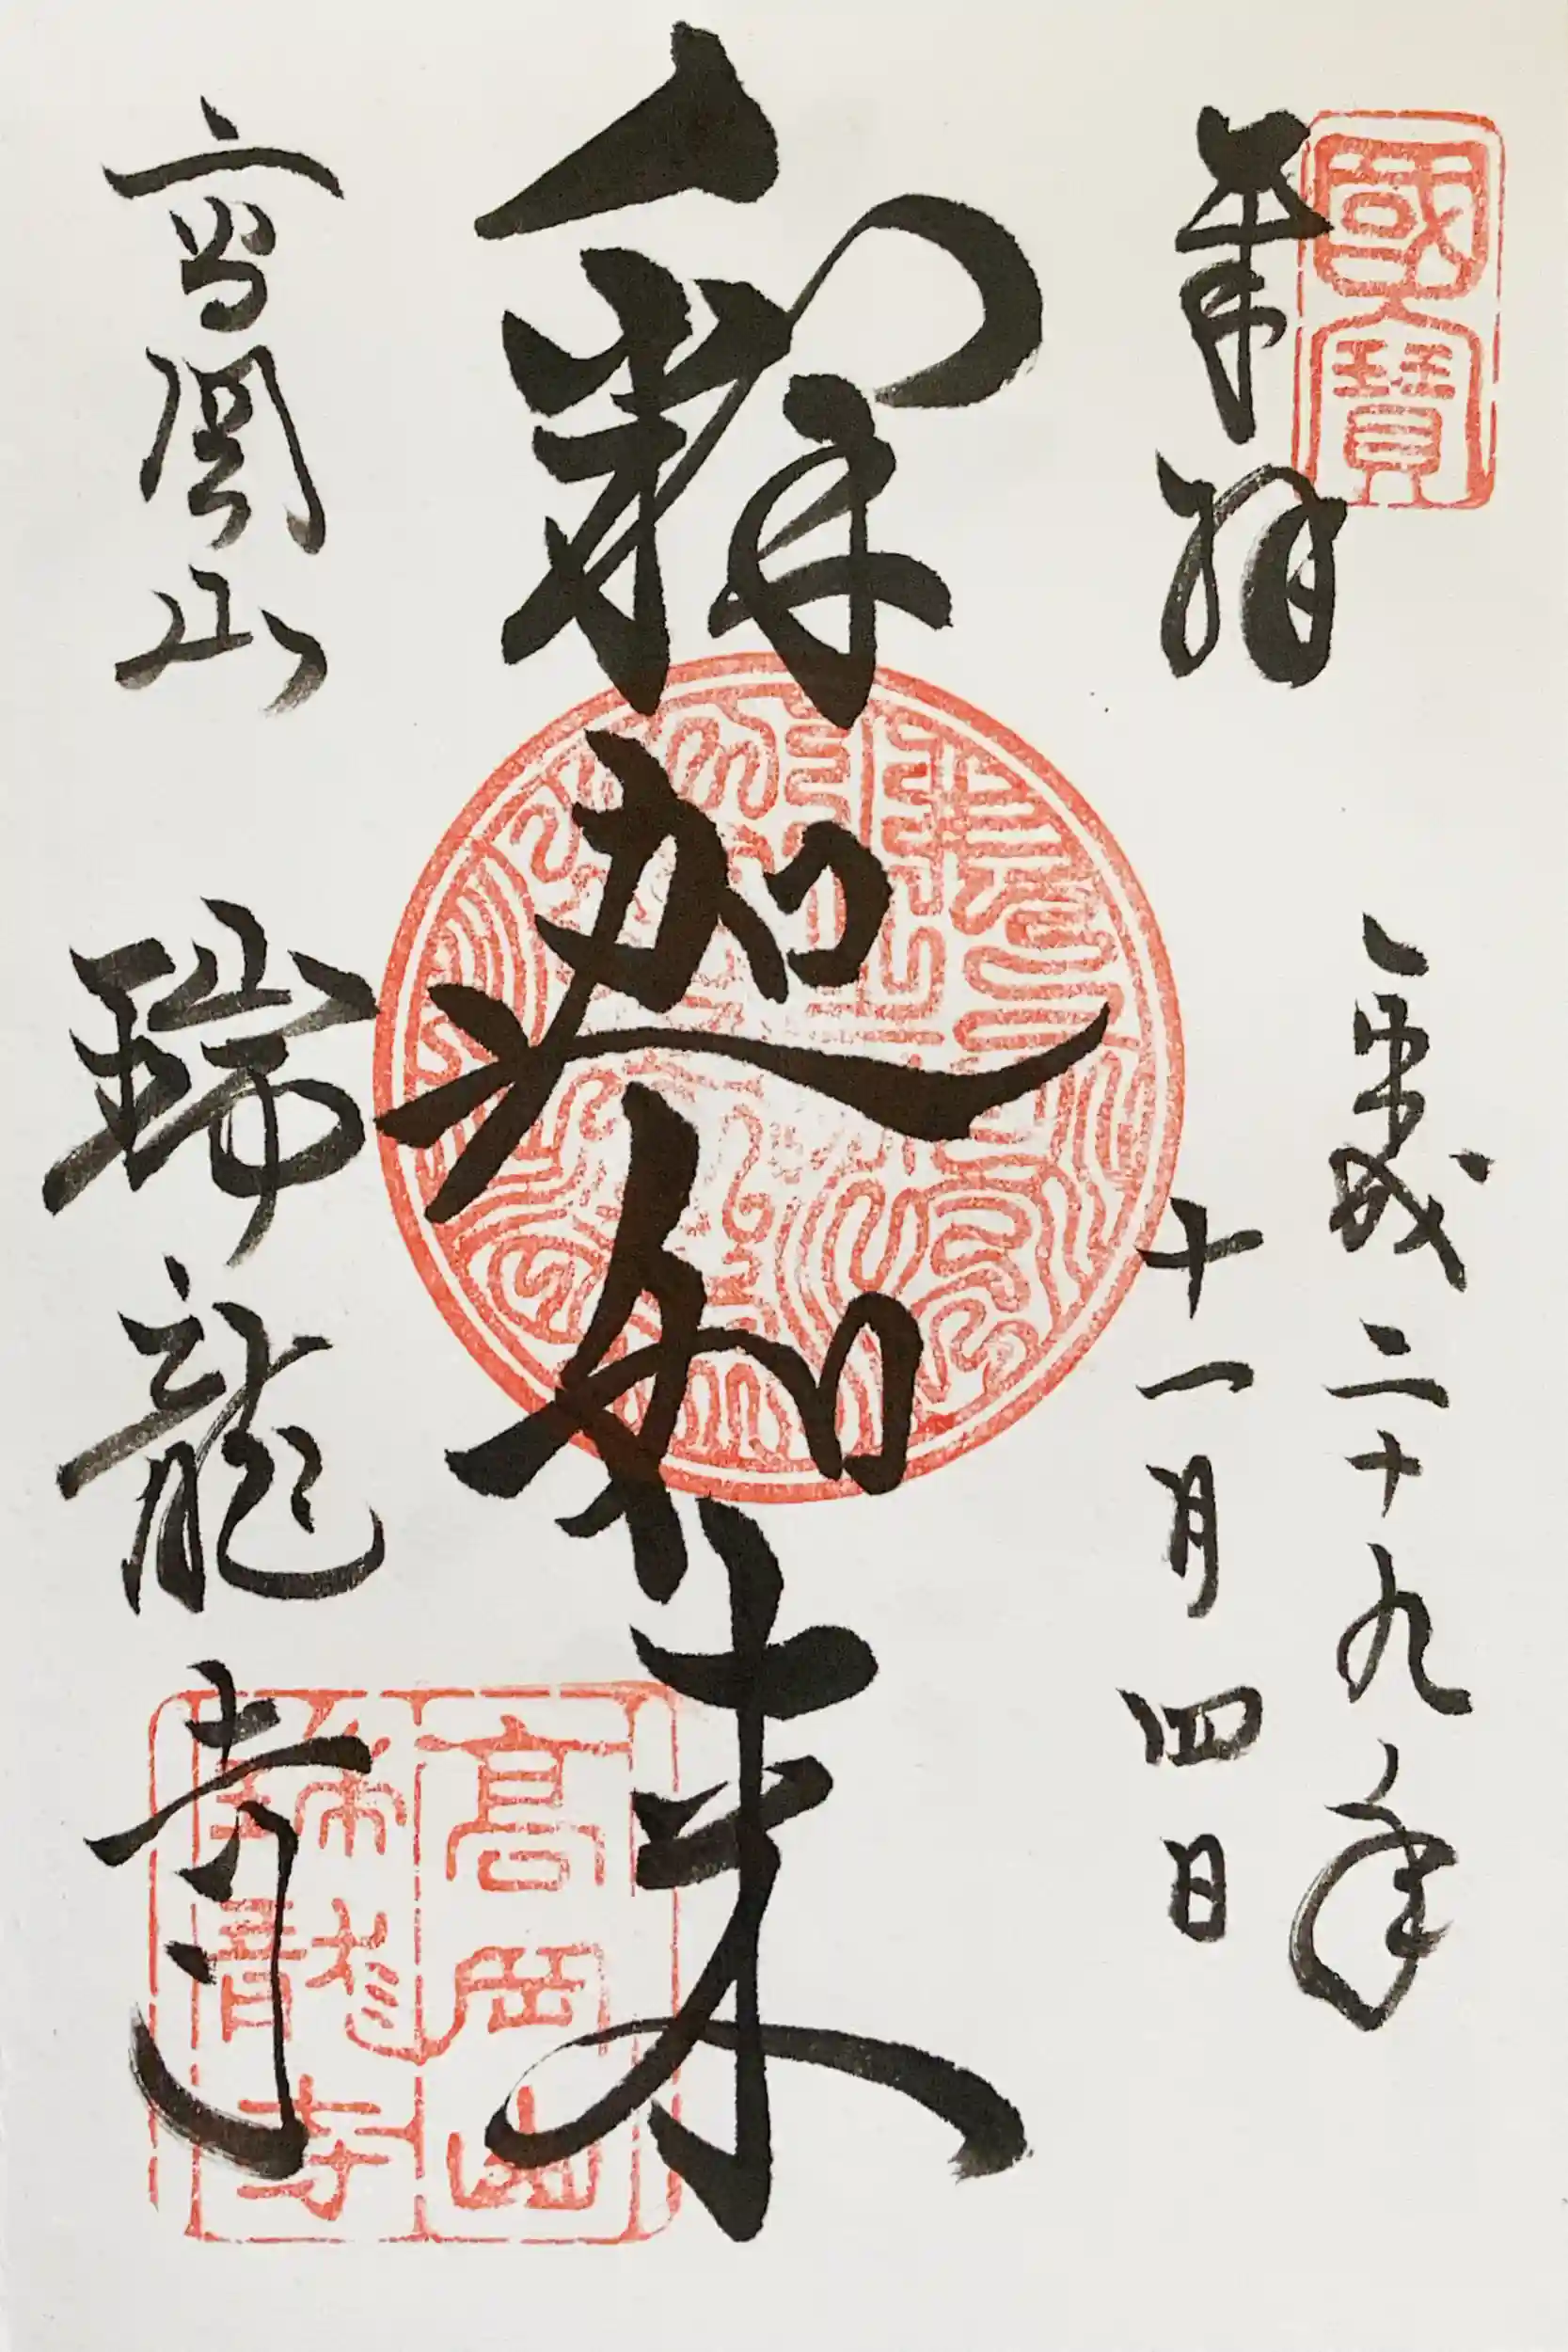 國寶
奉拜
平成二十九年
十一月四日
釋迦如来
高岡山
瑞龍寺
高岡山
瑞龍寺